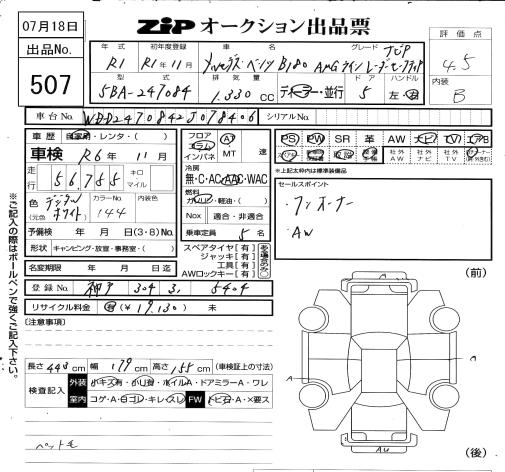 07月18日
ZIP オークション出品票
出品No.
507
年式 初年度登録 車名 グレード
R1 R1年11月 メルセデス・ベンツ B180 AMGライン レーダーセーフティ ナビP
評価点
4.5
型式 排気量 ドア ハンドル
5BA-247084 1.330 CC ディーラー・並行 5 左・右
内装
B
車台No. WDD2470842J078406 シリアルNo.
車歴 自家用・レンタ・( )
車検 R6年 11月
走行 56,755 キロ マイル
色 (元色) デジタルホワイト カラーNo. 144 内装色
予備検 年 月 日(3・8)No.
形状 キャンピング・放宣・事務室・( )
名変期限 年 月 日迄
フロア コラム インパネ AT MT 速
冷房
無・C・AC・AAC・WAC
燃料
ガソリン・軽油・( )
Nox 適合・非適合
乗車定員 5名
スペアタイヤ[有]
ジャッキ[有]
工具[有]
AWロックキー[有]
PS PW SR 革 AW ナビ TV エアB
社外AW 社外ナビ 社外TV
※上記太枠内は標準装備品
セールスポイント
・ワンオーナー
・AW
登録No. 神戸 304 す 5404
リサイクル料金 有(¥19,130) 未
[注意事項]
長さ443cm 幅179cm 高さ155cm (車検証上の寸法)
検査記入 外装 小キズ有・小凹有・ホイルA・ドアミラーA・ワレ
室内 コゲ・A・ヨゴレ・キレ・スレ FW トビ石・A・×要ス
ペット毛
※ご記入の際はボールペンで強くご記入下さい。
(前)
A
A
AW
(後)